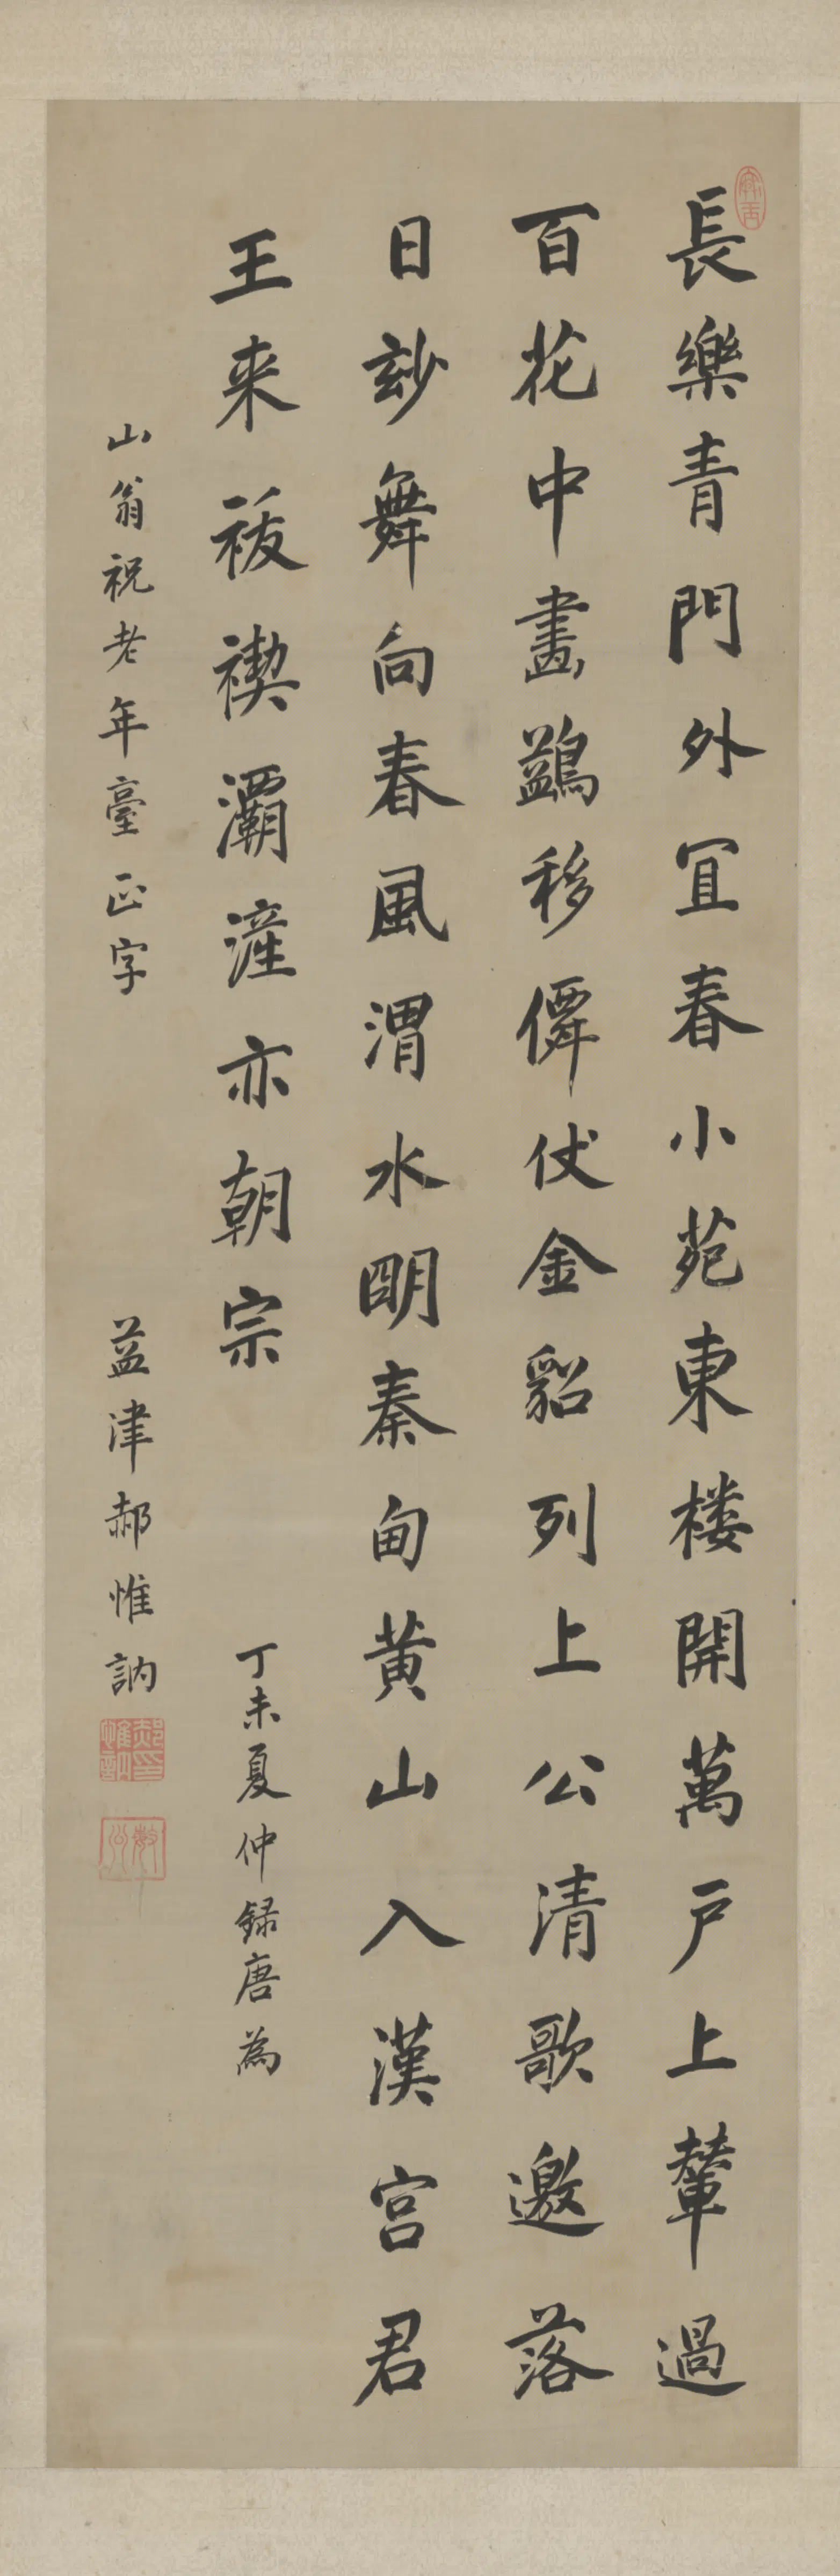 長樂青門外冝春小苑東樓開萬戸上輦過
百花中畫鷁移僊仗金貂列上公清歌邀落
日玅舞向春風渭水明秦甸黄山入漢宫君
王来祓禊灞滻亦朝宗
丁未夏仲録唐為
山翁祝老年臺正字
益津郝惟訥
郝惟訥印
敏公